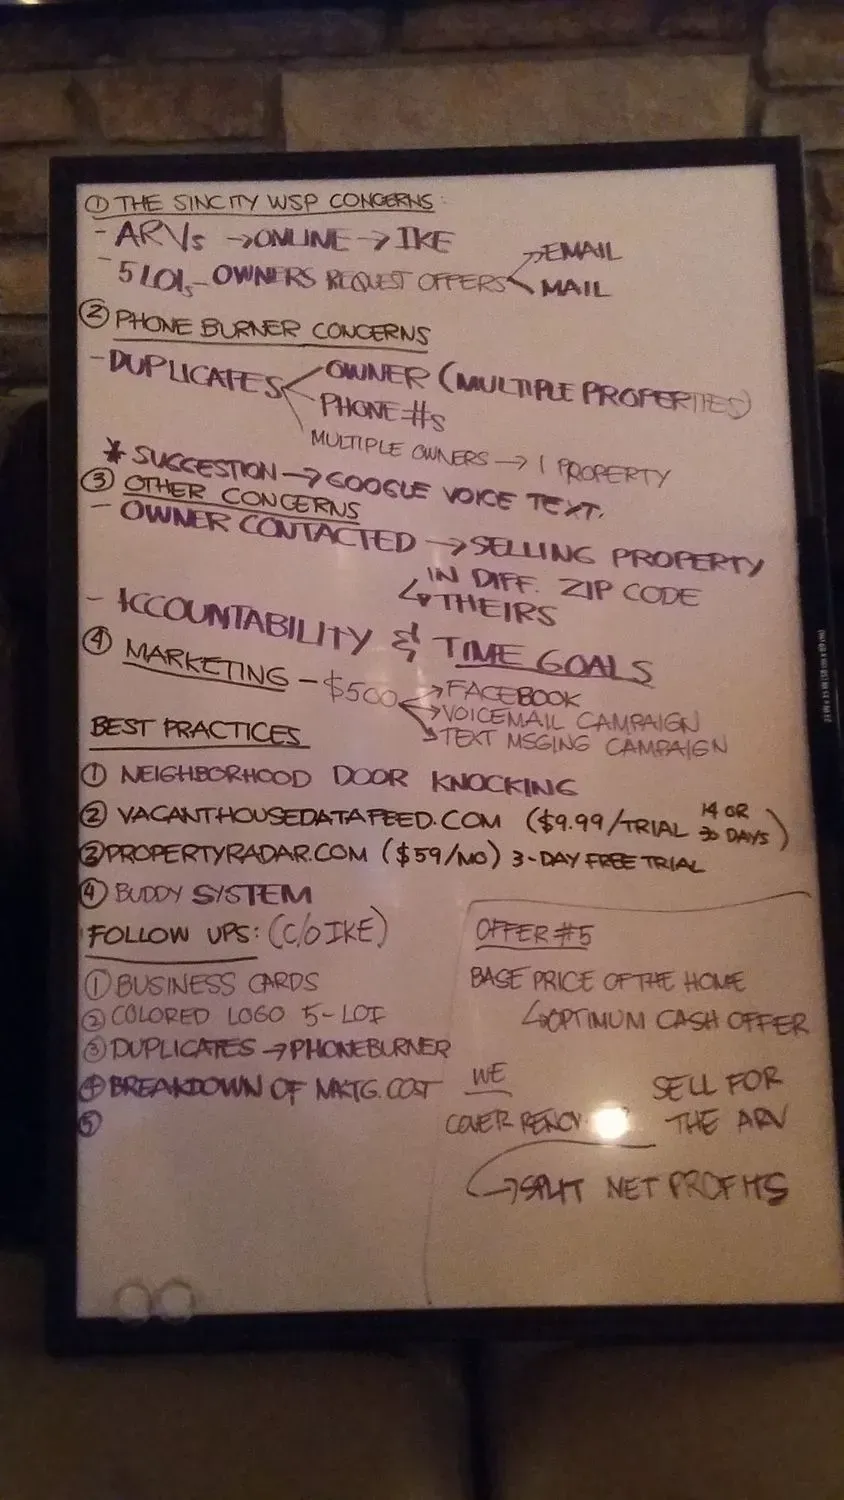 ① THE SINCITY WSP CONCERNS:
- ARVs → ONLINE → IKE
- 5 LOIs - OWNERS REQUEST OFFERS → EMAIL
→ MAIL
② PHONE BURNER CONCERNS
- DUPLICATES OWNER (MULTIPLE PROPERTIES)
PHONE #s
MULTIPLE OWNERS → 1 PROPERTY
* SUGGESTION → GOOGLE VOICE TEXT.
③ OTHER CONCERNS
- OWNER CONTACTED → SELLING PROPERTY
IN DIFF. ZIP CODE
↳ THEIRS
- ACCOUNTABILITY & TIME GOALS
④ MARKETING - $500 → FACEBOOK
→ VOICEMAIL CAMPAIGN
→ TEXT MSGING CAMPAIGN
BEST PRACTICES
① NEIGHBORHOOD DOOR KNOCKING
② VACANTHOUSEDATAFEED.COM ($9.99/TRIAL 14 OR
30 DAYS)
③ PROPERTYRADAR.COM ($59/MO) 3-DAY FREE TRIAL
④ BUDDY SYSTEM
FOLLOW UPS: (C/O IKE)
① BUSINESS CARDS
② COLORED LOGO 5-LOI
③ DUPLICATES → PHONEBURNER
④ BREAKDOWN OF MKTG. COST
⑤
OFFER #5
BASE PRICE OF THE HOME
↳ OPTIMUM CASH OFFER
WE SELL FOR
COVER THE ARV
→ SPLIT NET PROFITS